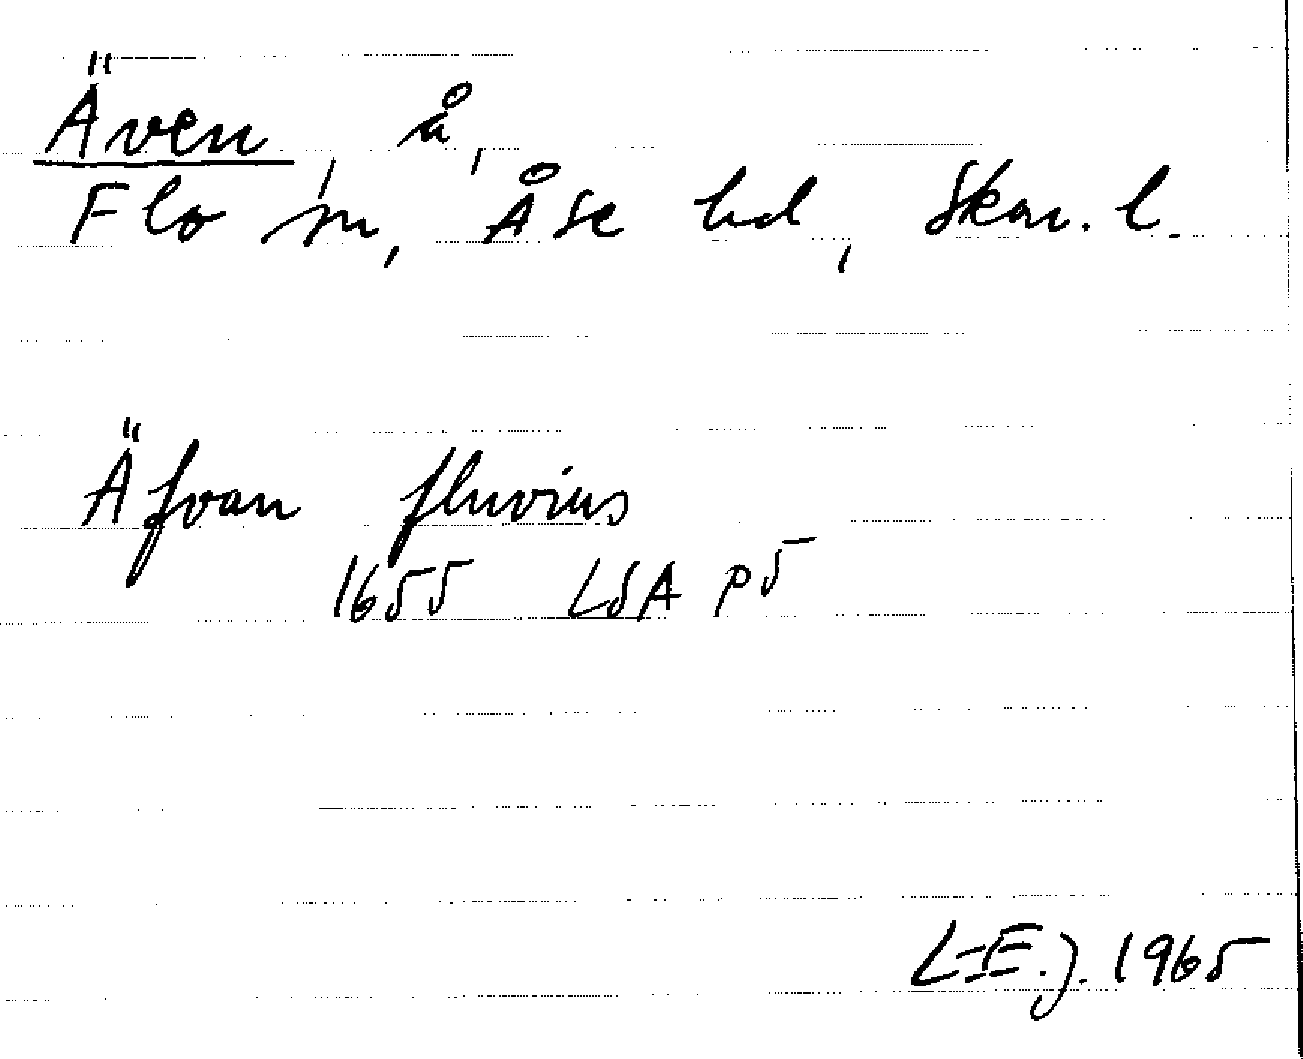 Även, å,
Flo sn, Åse hd, Skar. l.
Äfvan fluvius
1655 LSA p5
L-E.J. 1965